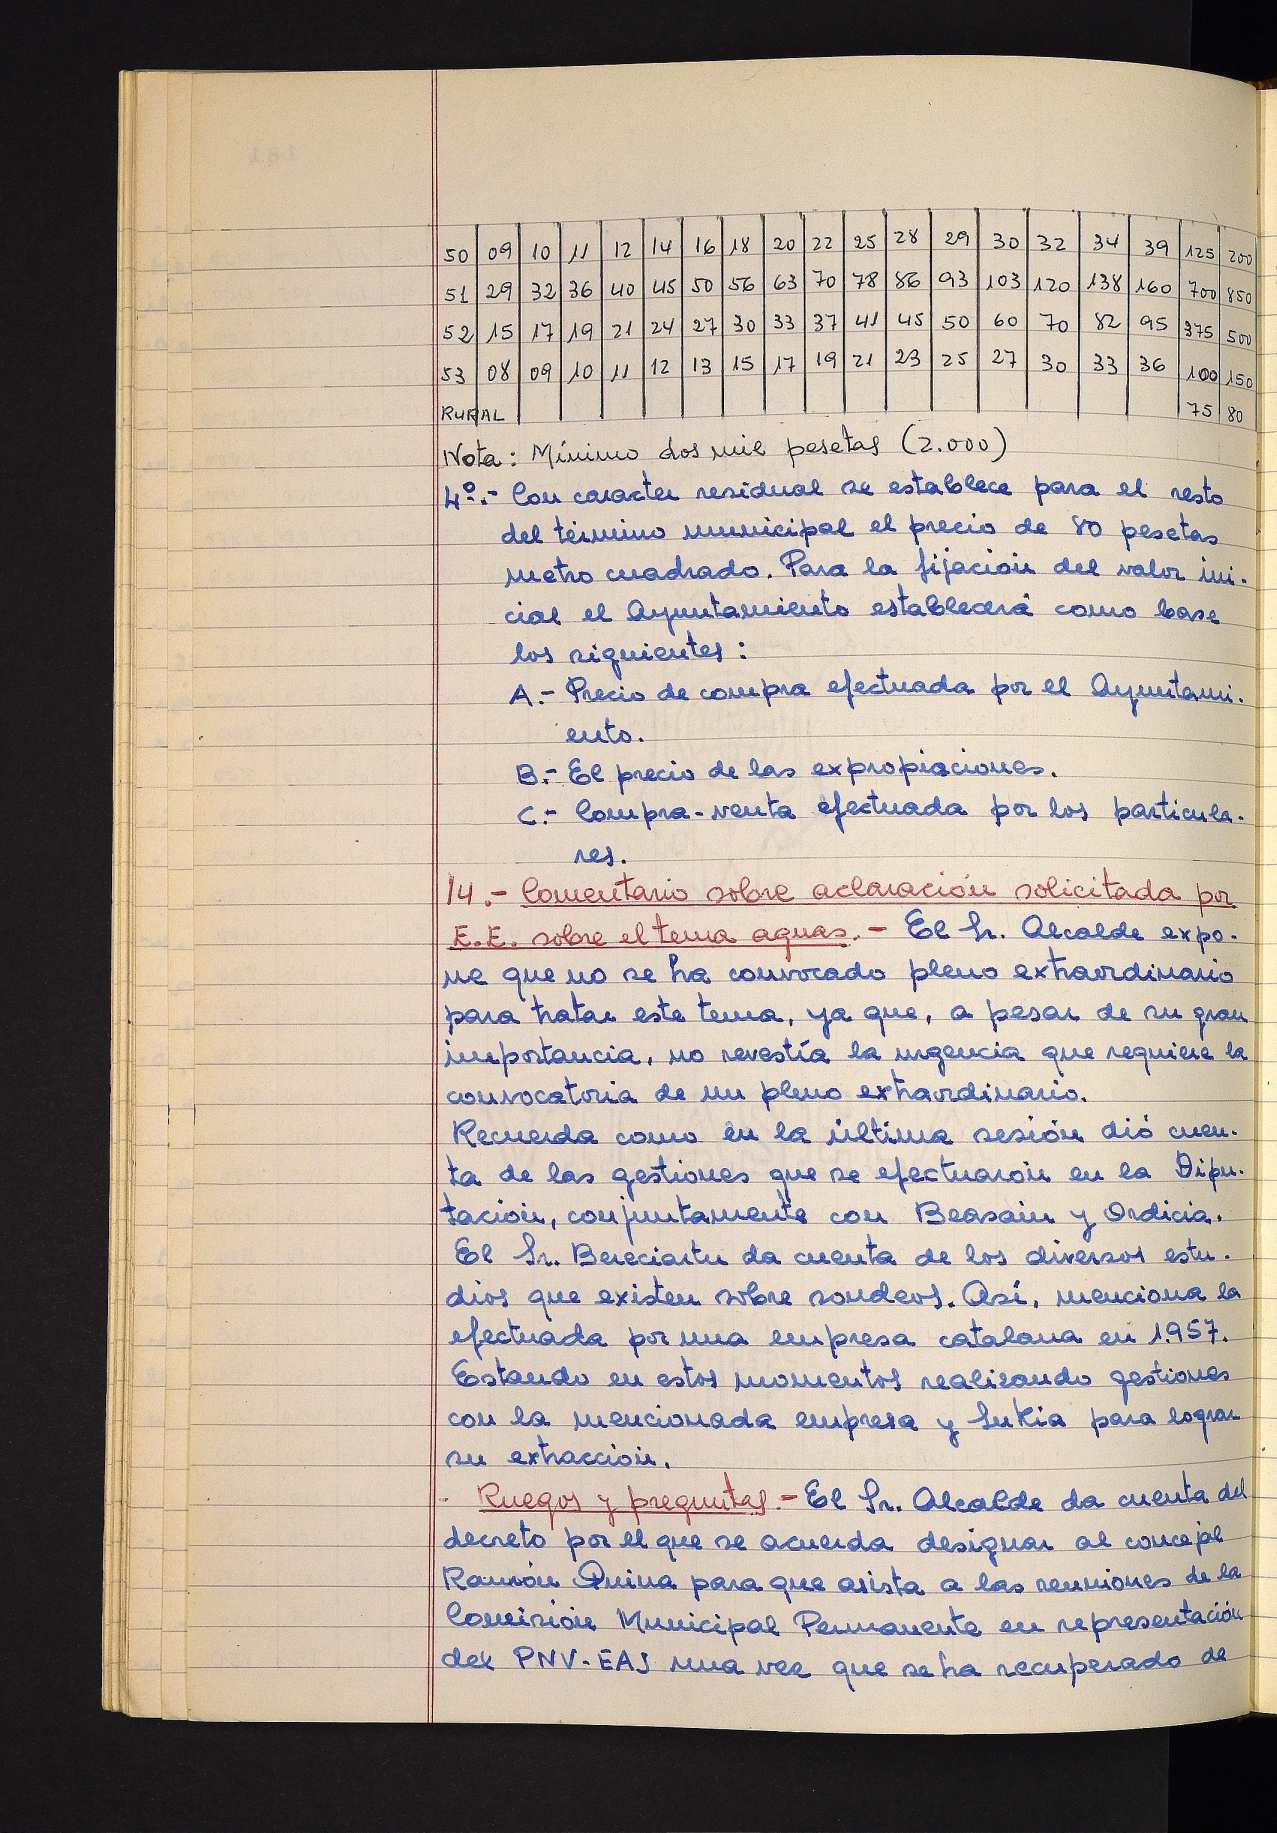 50 09 10 11 12 14 16 18 20 22 25 28 29 30 32 34 39 125 200
51 29 32 36 40 45 50 56 63 70 78 86 93 103 120 138 160 700 850
52 15 17 19 21 24 27 30 33 37 41 45 50 60 70 82 95 375 500
53 08 09 10 11 12 13 15 17 19 21 23 25 27 30 33 36 100 150
RURAL 75 80
Nota: Mínimo dos mil pesetas (2.000)
4º.- Con caracter residual se establece para el resto
del término municipal el precio de 80 pesetas
metro cuadrado. Para la fijación del valor ini-
cial el Ayuntamiento establecerá como base
los siguientes:
A.- Precio de compra efectuada por el Ayuntami-
ento.
B.- El precio de las expropiaciones.
C.- Compra-venta efectuada por los particula-
res.
14.- Comentario sobre aclaración solicitada por
E.E. sobre el tema aguas.- El Sr. Alcalde expo-
ne que no se ha convocado pleno extraordinario
para tratar este tema, ya que, a pesar de su gran
importancia, no revestía la urgencia que requiere la
convocatoria de un pleno extraordinario.
Recuerda como en la última sesión dió cuen-
ta de las gestiones que se efectuarón en la Dipu-
tación, conjuntamente con Beasain y Ordicia.
El Sr. Bereciartu da cuenta de los diversos estu-
dios que existen sobre sondeos. Así, menciona la
efectuada por una empresa catalana en 1.957.
Estando en estos momentos realizando gestiones
con la mencionada empresa y Sukia para lograr
su extracción.
- Ruegos y preguntas.- El Sr. Alcalde da cuenta del
decreto por el que se acuerda designar al concejal
Ramón Quina para que asista a las reuniones de la
Comisión Municipal Permanente en representación
del PNV-EAJ una vez que se ha recuperado de